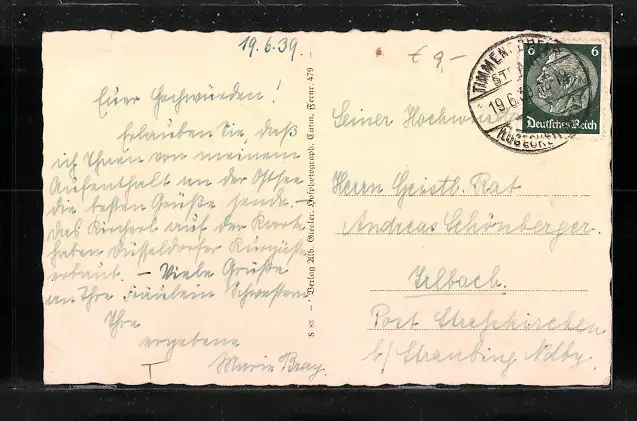 19.6.39.
Euer Hochwürden!
Erlauben Sie, daß
ich Ihnen von meinem
Aufenthalt an der Ostsee
die besten Grüße sende. –
Das Kircherl auf der Karte
haben Düsseldorfer Kurgäste
erbaut. – Viele Grüße
an Ihre Fräulein Schwestern
Ihre
ergebene
Marie Bray.
S 83 — Verlag Alb. Giesler, Hofphotograph, Eutin, Fernr. 479 —
€ 9,-
TIMMENDORFER
STRAND
19.6.
LÜBECK
6 6
Deutsches Reich
Seiner Hochwürden
Herrn Geistl. Rat
Andreas Schönberger.
Irlbach.
Post Straßkirchen
b/ Straubing Ndby.